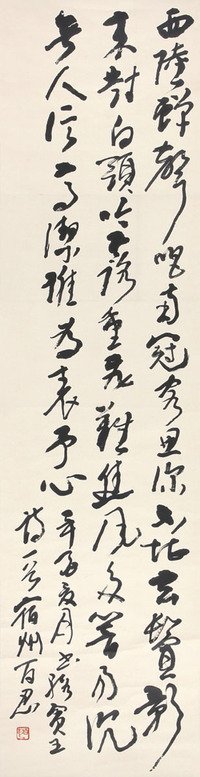 西陸蟬聲唱南冠客思深不堪玄鬢影
来對白頭吟露重飛難進風多響易沉
無人信高潔誰為表予心
夏月書駱賓王
詩一首宿州百忍